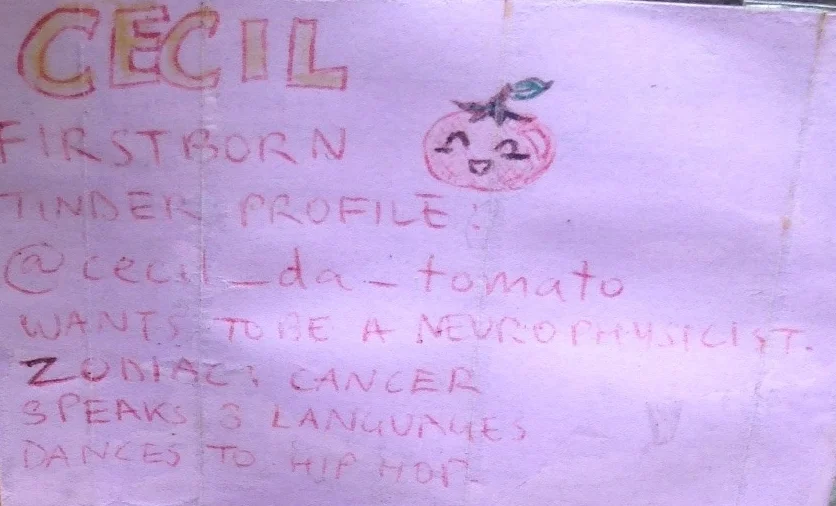 CECIL
FIRSTBORN
TINDER PROFILE:
@cecil_da_tomato
WANTS TO BE A NEUROPHYSICIST.
ZODIAC: CANCER
SPEAKS 3 LANGUAGES
DANCES TO HIP HOP